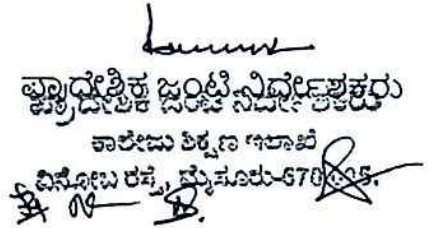 ಪ್ರಾದೇಶಿಕ ಜಂಟಿ ನಿರ್ದೇಶಕರು
ಕಾಲೇಜು ಶಿಕ್ಷಣ ಇಲಾಖೆ
ವಿನೋಬ ರಸ್ತೆ, ಮೈಸೂರು-570005.